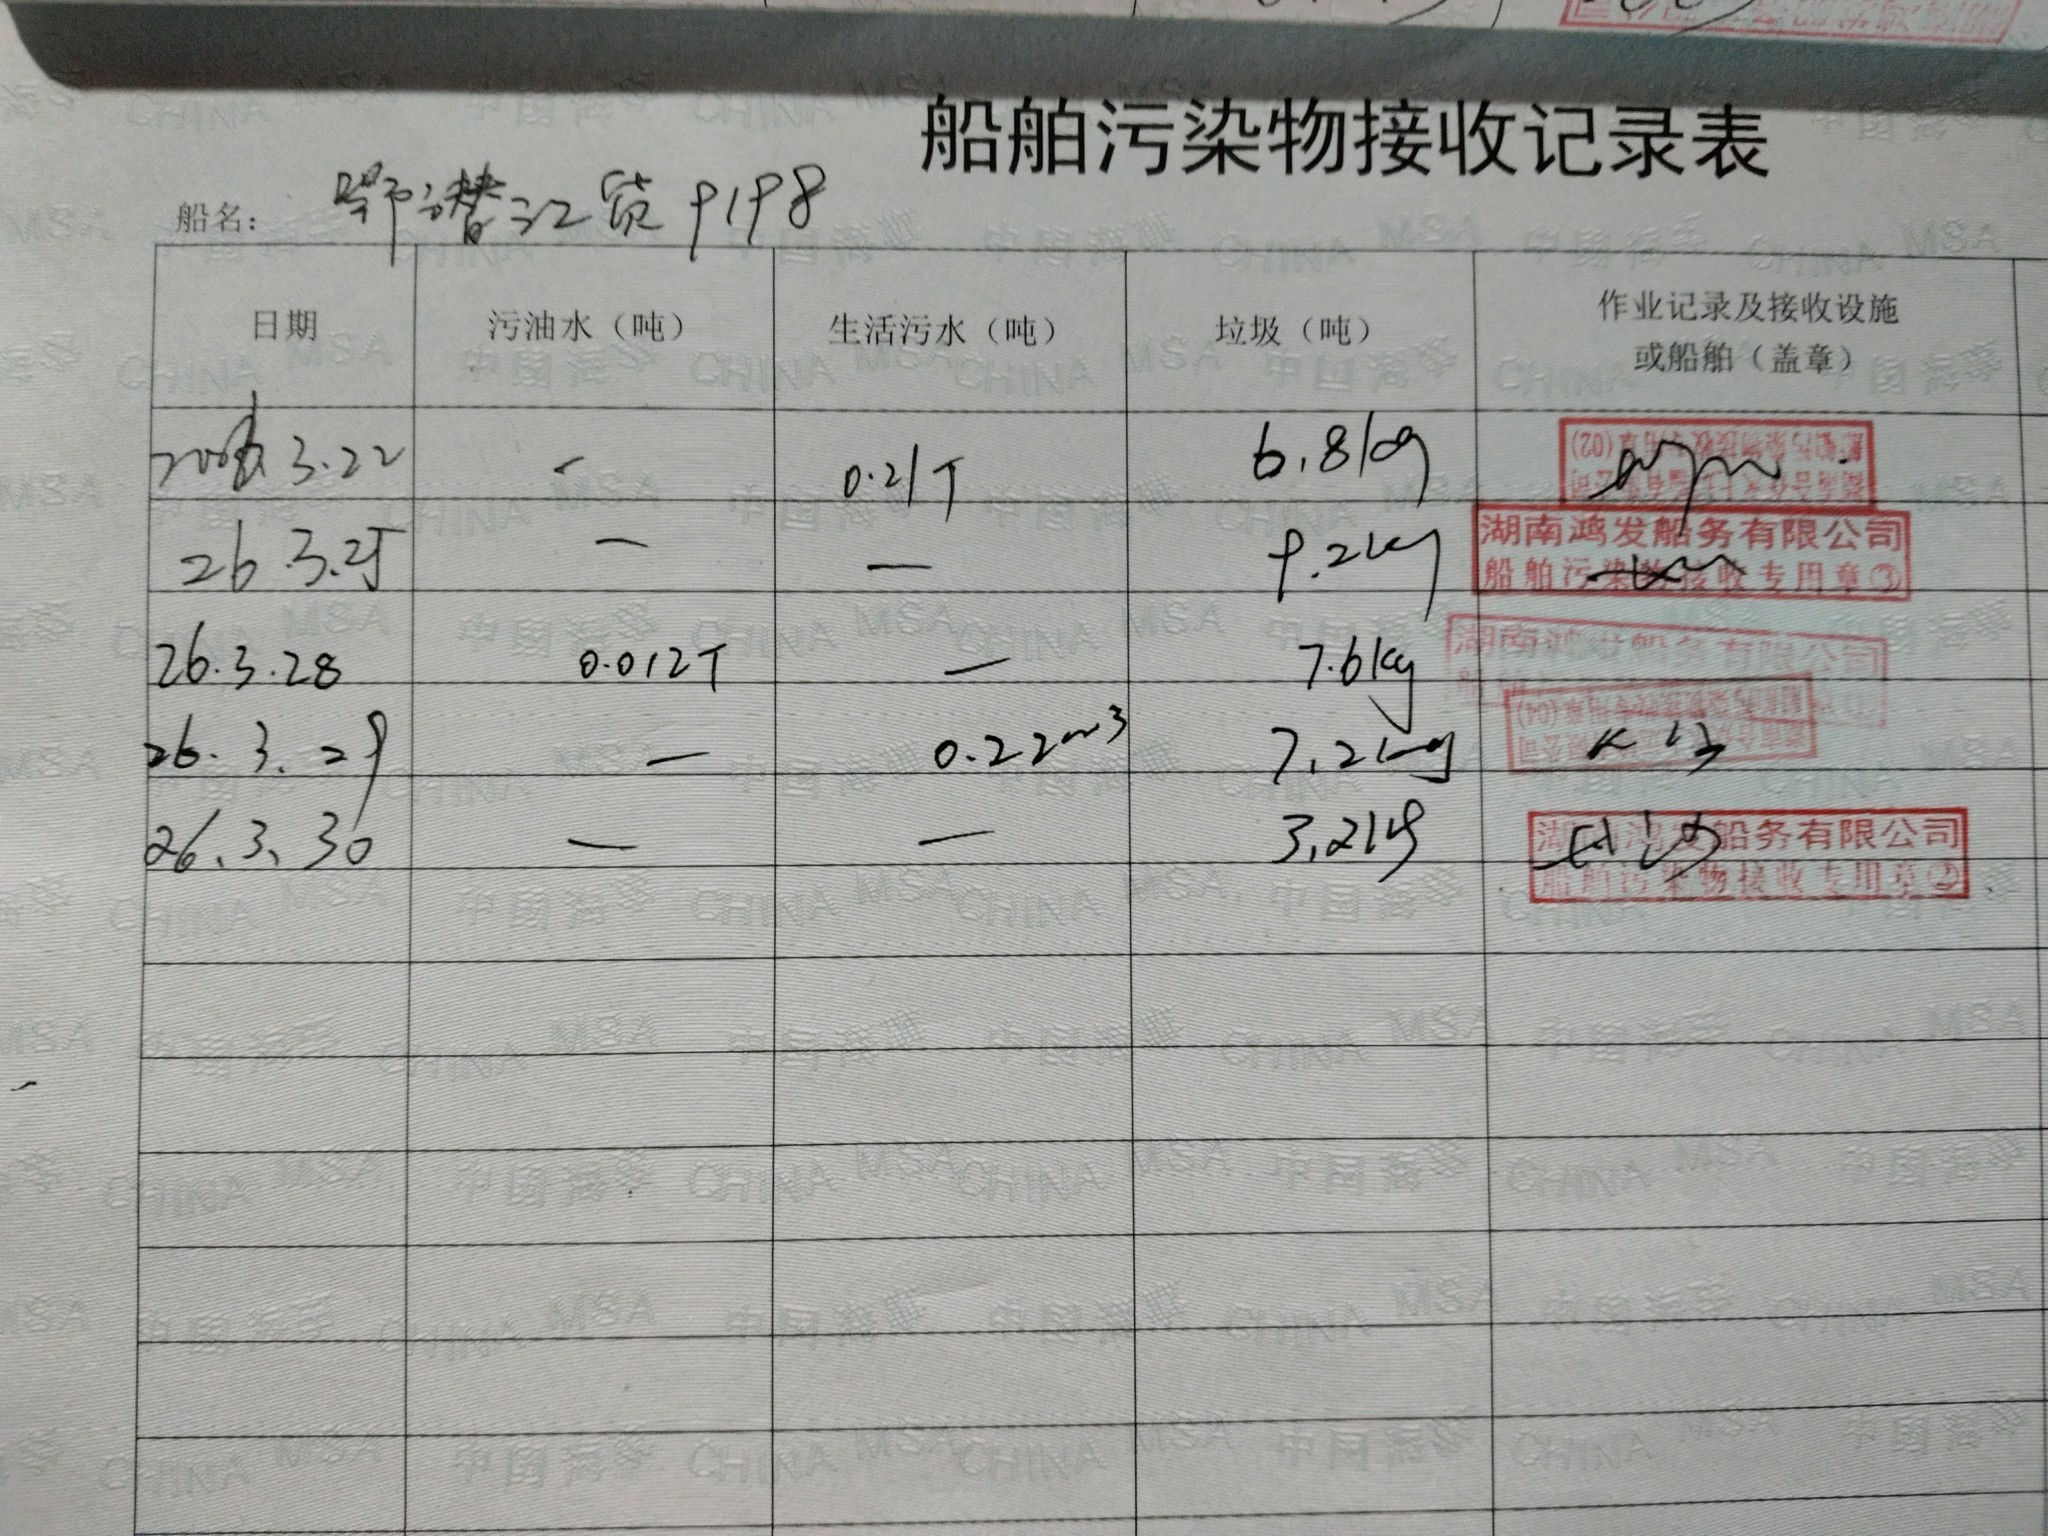 船舶污染物接收记录表
船名：鄂潜江货9198
日期 污油水（吨） 生活污水（吨） 垃圾（吨） 作业记录及接收设施
或船舶（盖章）
3.22 - 0.21T 6.8kg
26.3.25 — — 9.2kg 湖南鸿发船务有限公司
船舶污染物接收专用章③
26.3.28 0.012T — 7.6kg 湖南鸿发船务有限公司
26.3.29 — 0.22m³ 7.2kg
26.3.30 — — 3.2kg 湖南鸿发船务有限公司
船舶污染物接收专用章②